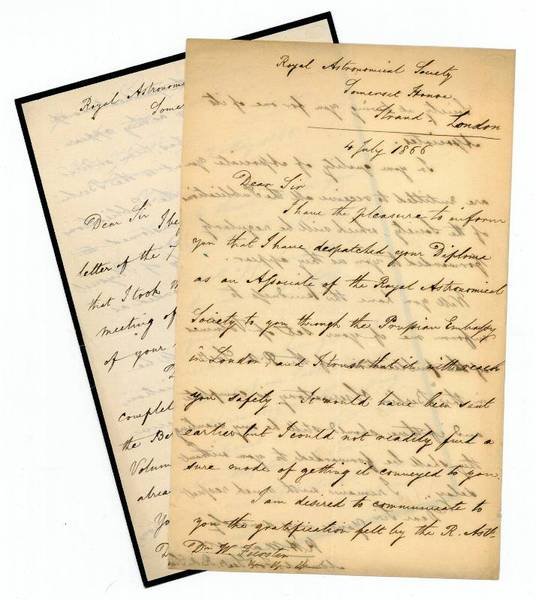 Royal Astronomical Society
Somerset House
Strand London
4 July 1866
Dear Sir
I have the pleasure to inform
you that I have despatched your Diploma
as an Associate of the Royal Astronomical
Society to you through the Prussian Embassy
in London and I trust that it will reach
you safely – It would have been sent
earlier but I could not readily find a
sure mode of getting it conveyed to you.
I am desired to communicate to
you the gratification felt by the R. Astl.
Dr. W.
Royal Astronom
Some
Dear Sir I be
letter of the
that I took
meeting of
of your
complet
the Be
Volum
alrea
Yo